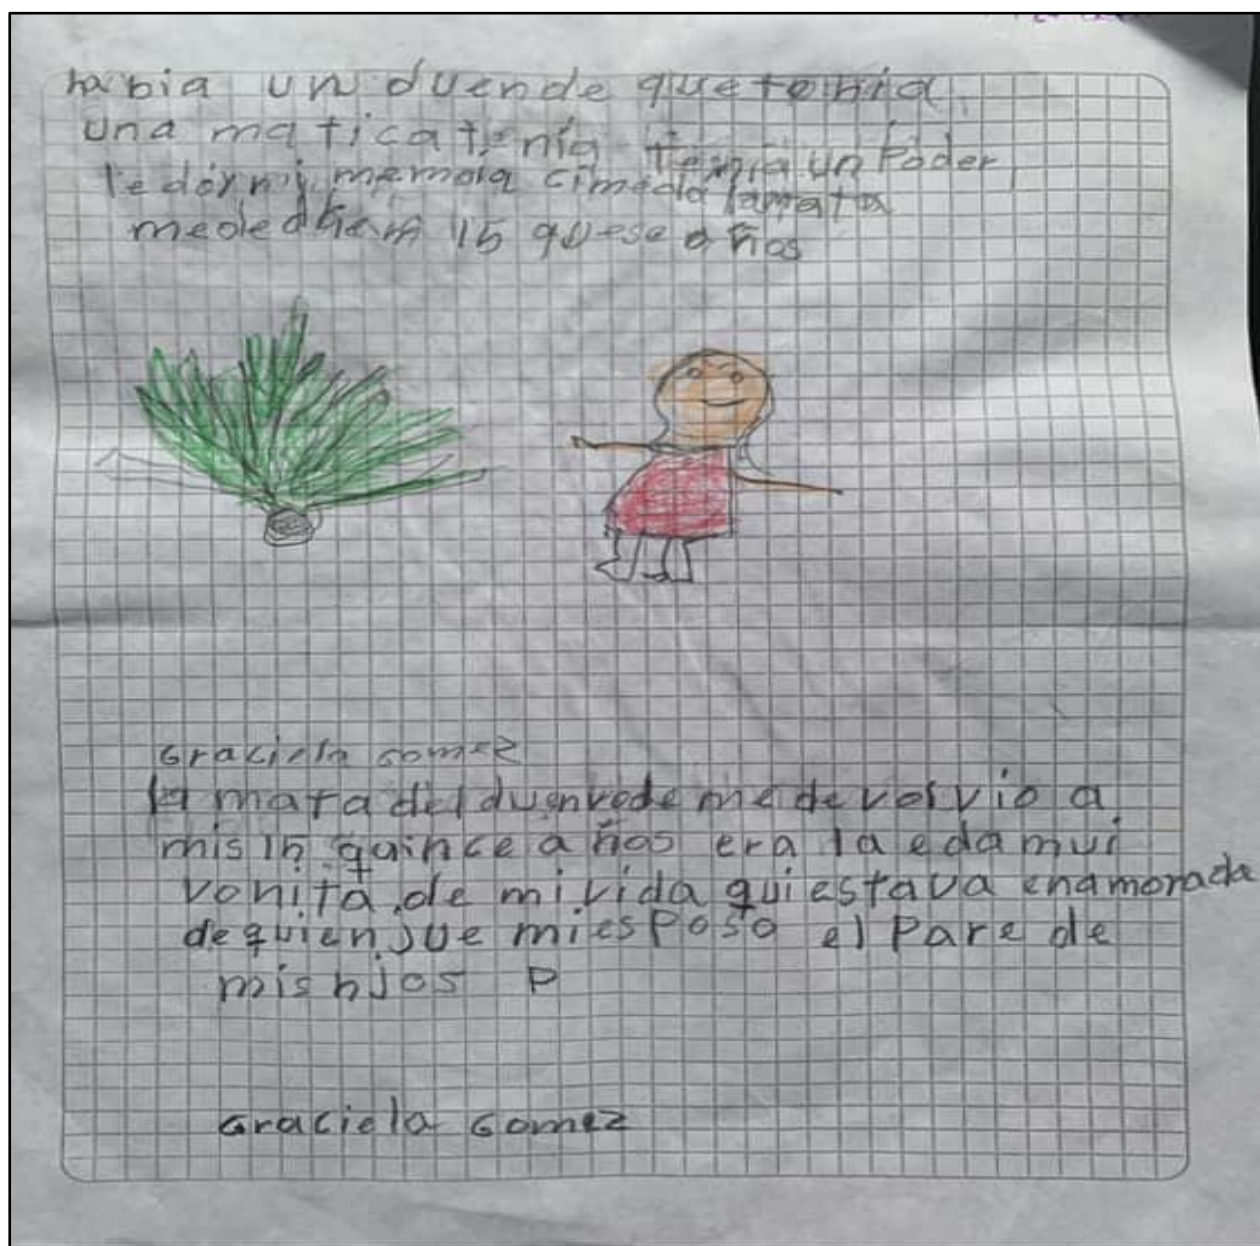 habia un duende que tenia
una matica tenia tenia un Poder
me da la mata
15 quese años
Graciela Gomez
la mata del duenvede me devolvio a
mis 15 quince años era la eda mui
vonita de mi vida qui estava enamorada
de quien jue mi esposo el Pare de
mis hijos P
Graciela Gomez